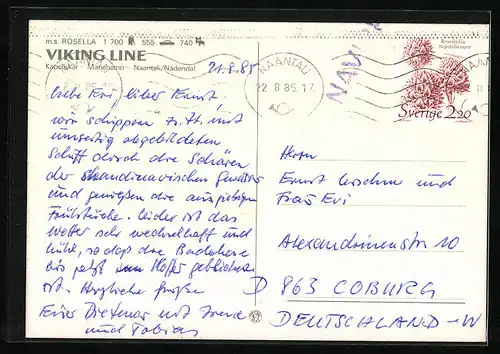 m.s. ROSELLA 1 700 555 740
VIKING LINE
Kapellskär - Mariehamn - Naantali/Nådendal
21.8.85
Liebe Evi, lieber Ernst,
wir schippern z. Zt. mit
umseitig abgebildeten
Schiff durch die Schären
der skandinavischen Gewässer
und genießen die ausgiebigen
Frühstücke. Leider ist das
Wetter sehr wechselhaft und
kühl, so daß die Badehose
bis jetzt im Koffer geblieben
ist. Herzliche Grüße
Euer Dietmar mit
und Tobias
NAANTALI
22.8.85.17
NAV
Sverige 2,20
Herrn
Ernst und
Frau Evi
Alexandrinenstr 10
D 863 COBURG
DEUTSCHLAND-W